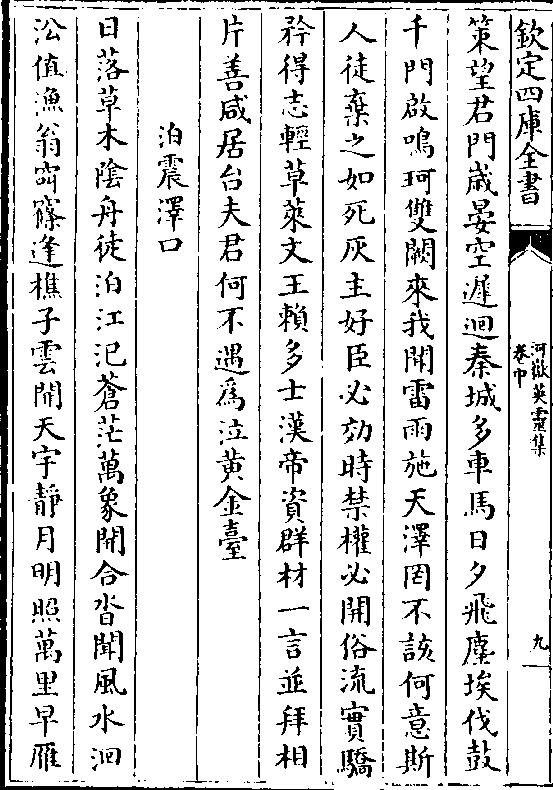 欽定四庫全書
河嶽英靈集
卷中
九
策望君門歲晏空遲迴秦城多車馬日夕飛塵埃伐鼓
千門啟鳴珂雙闕來我聞雷雨施天澤罔不該何意斯
人徒棄之如死灰主好臣必効時禁權必開俗流實驕
矜得志輕草萊文王賴多士漢帝資群材一言並拜相
片善咸居台夫君何不遇為泣黄金臺
泊震澤口
日落草木陰舟徒泊江汜蒼茫萬象開合沓聞風水洄
沿值漁翁窅篠逢樵子雲開天宇靜月明照萬里早雁